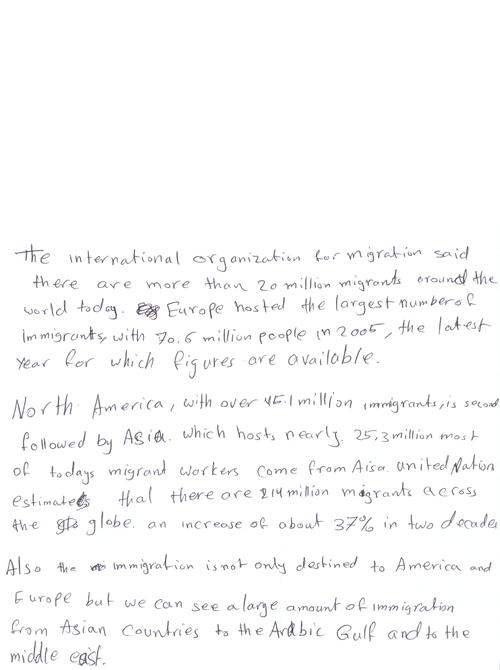 The international organization for migration said
there are more than 20 million migrants around the
world today. Europe hosted the largest number of
immigrants, with 70.6 million people in 2005, the latest
year for which figures are available.
North America, with over 45.1 million immigrants, is second
followed by Asia. which hosts nearly. 25,3 million most
of todays migrant workers come from Aisa. united Nation
estimates that there are 214 million migrants across
the globe. an increase of about 37% in two decades
Also the immigration is not only destined to America and
Europe but we can see a large amount of immigration
from Asian Countries to the Arabic Gulf and to the
middle east.